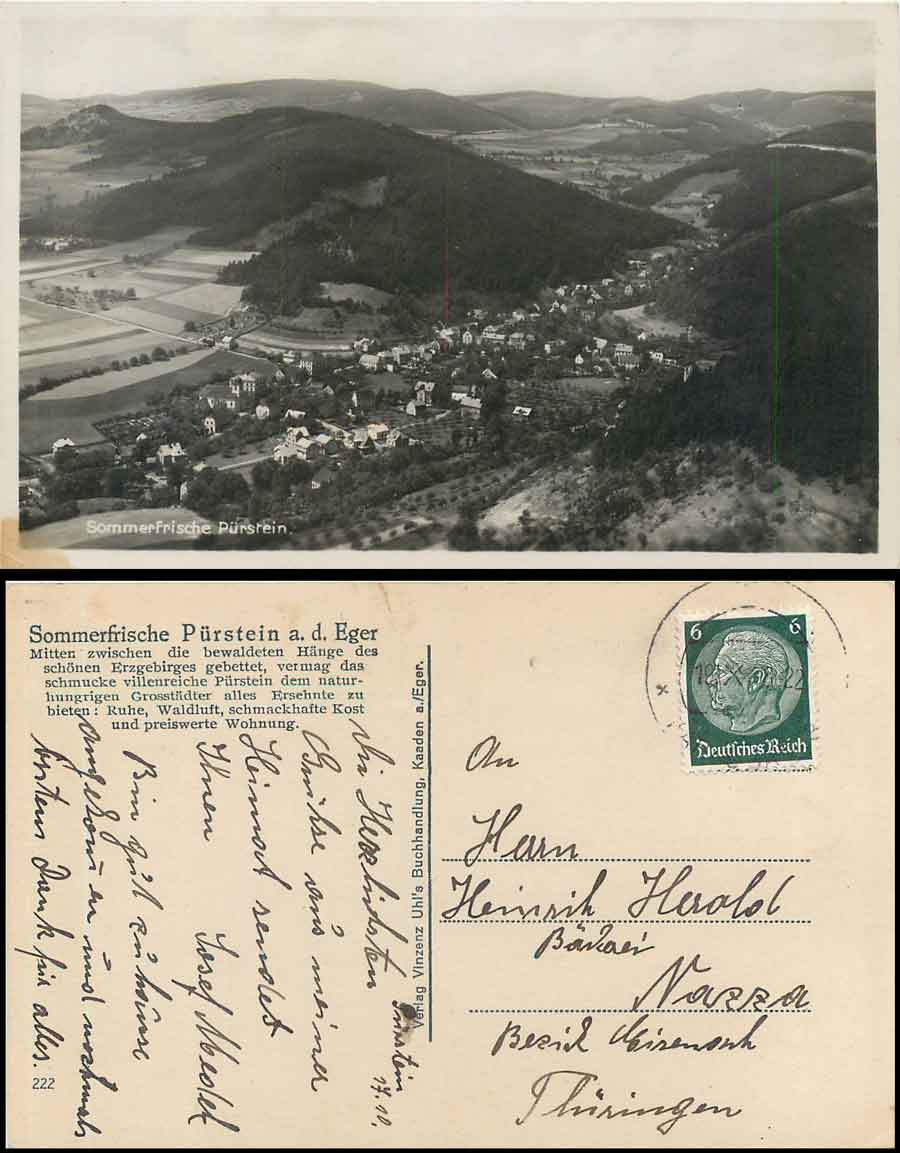 Sommerfrische Pürstein.
Sommerfrische Pürstein a. d. Eger
Mitten zwischen die bewaldeten Hänge des
schönen Erzgebirges gebettet, vermag das
schmucke villenreiche Pürstein dem natur-
hungrigen Grosstädter alles Ersehnte zu
bieten: Ruhe, Waldluft, schmackhafte Kost
und preiswerte Wohnung.
Pürstein
17.10.
Die Herzlichsten
Grühse aus meiner
Heimat sendet
Ihnen Josef
Bin gut zuhause
angekomen und nochmals
bestens Dank für alles.
222
Verlag Vinzenz Uhl's Buchhandlung, Kaaden a./Eger.
6 6
Deutsches Reich
An
Herrn
Heinrich Herold
Bäckerei
Nazza
Bezirk
Thüringen